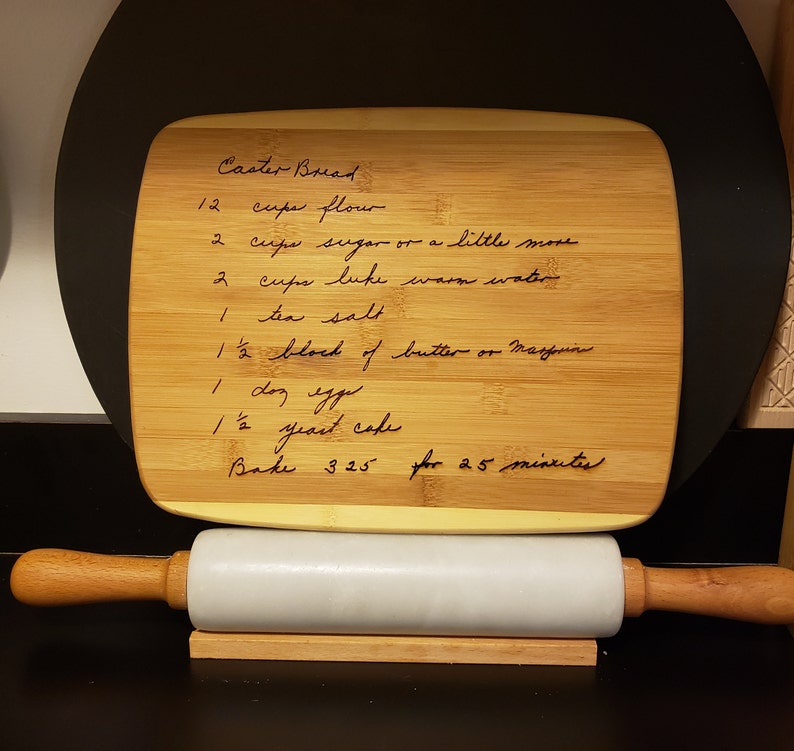 Easter Bread
12 cups flour
2 cups sugar or a little more
2 cups luke warm water
1 tea salt
1 1/2 block of butter or Margarin
1 doz eggs
1 1/2 yeast cake
Bake 325 for 25 minutes